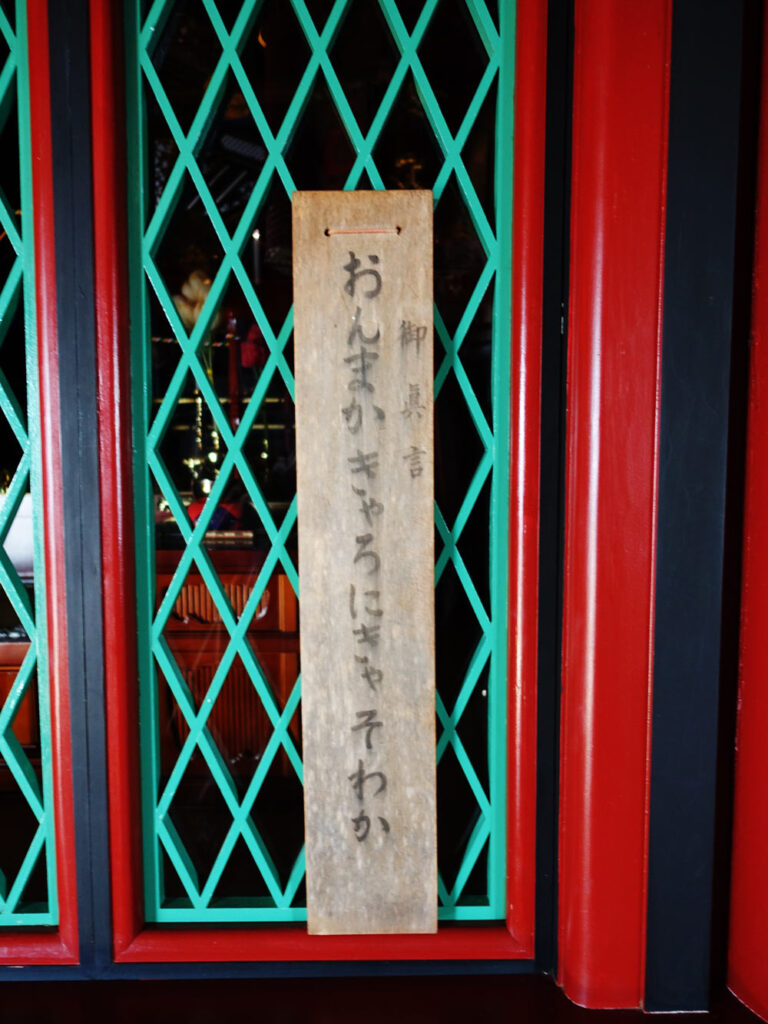 御眞言
おんまかきゃろにきゃそわか